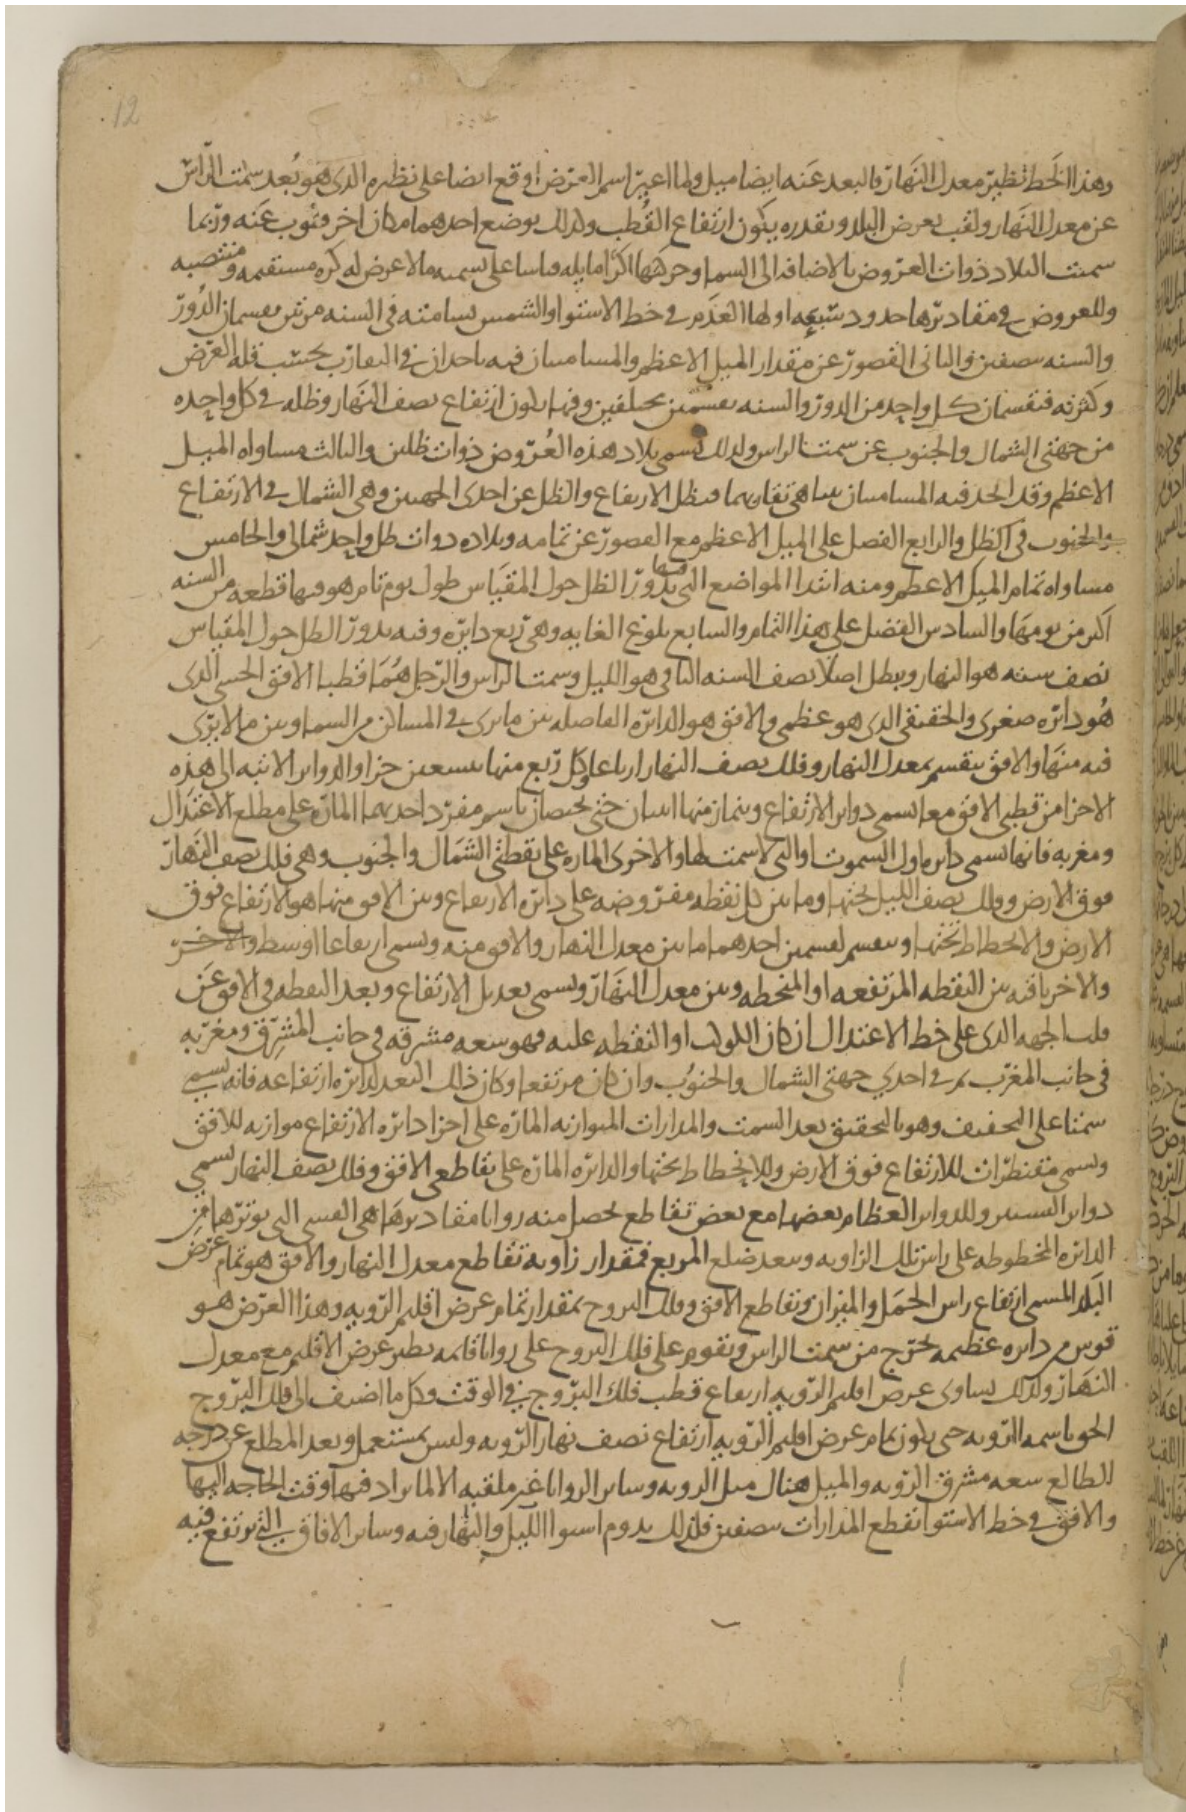 12
وهذا الخط نظير معدل النهار فالبعد عنه ايضا ميل ولما اعير اسم العرض اوقع ايضا على نظيره الذى هو بعد سمت الراس
عن معدل النهار ولقب بعرض البلد وبقدره يكون ارتفاع القطب ولذلك يوضع احدهما مكان اخر وينوب عنه وربما
سميت البلاد ذوات العروض بالاضافه الى السما وحركتها اكرا مايله قياسا على تسميه ما لا عرض له كره مستقيمه ومنتصبه
وللعروض فى مقاديرها حدود سبعه اولها العدم فى خط الاستوا والشمس تسامته فى السنه مرتين يقسمان الدور
والسنه بنصفين والثانى القصور عن مقدار الميل الاعظم والمسامتتان فيه ياخذان فى التقارب بحسب قله العرض
وكثرته فتقسمان كل واحد من الدور والسنه بقسمين مختلفين وفيها يكون ارتفاع نصف النهار وظله فى كل واحده
من جهتى الشمال والجنوب عن سمت الراس ولذلك تسمى بلاد هذه العروض ذوات ظلين والثالث مساواه الميل
الاعظم وقد اتحد فيه المسامتتان بتناهى تقاربهما فبطل الارتفاع والظل عن احدى الجهتين وهى الشمال فى الارتفاع
والجنوب فى الظل والرابع الفضل على الميل الاعظم مع القصور عن تمامه وبلاده ذوات ظل واحد شمالى والخامس
مساواه تمام الميل الاعظم ومنه ابتدا المواضع التى يدور فيها الظل حول المقياس طول يوم تام هو فيها قطعه من السنه
اكبر من يومها والسادس الفضل على هذا التمام والسابع بلوغ الغايه وهى ربع دايره وفيه يدور الظل حول المقياس
نصف سنه هو النهار ويبطل اصلا نصف السنه الباقى هو الليل وسمت الراس والرجل هما قطبا الافق الحسى الذى
هو دايره صغرى والحقيقى الذى هو عظمى والافق هو الدايره الفاصله بين ما يرى فى المساكن من السما وبين ما لا يرى
فيه منها والافق ينقسم بمعدل النهار وفلك نصف النهار ارباعا وكل ربع منها بتسعين جزا والدواير الاتيه الى هذه
الاجزا من قطبى الافق معا تسمى دواير الارتفاع ويمتاز منها اثنتان حتى يختصان باسم مفرد احديهما الماره على مطلع الاعتدال
ومغربه فانها تسمى دايره اول السموت والتى لا سمت لها والاخرى الماره على نقطتى الشمال والجنوب وهى فلك نصف النهار
فوق الارض وفلك نصف الليل تحتها وما بين كل نقطه مفروضه على دايره الارتفاع وبين الافق منها هو الارتفاع فوق
الارض والانحطاط تحتها وينقسم لقسمين احدهما ما بين معدل النهار والافق منه ويسمى ارتفاعا اوسط والاخر
والاخر باقيه بين النقطه المرتفعه او المنحطه وبين معدل النهار ويسمى تعديل الارتفاع وبعد النقطه فى الافق عن
قلب الجهه الذى على خط الاعتدال ان كان الكوكب او النقطه عليه فهو سعه مشرقه فى جانب المشرق ومغربه
فى جانب المغرب فى احدى جهتى الشمال والجنوب وان كان مرتفعا وكان ذلك البعد لدايره ارتفاعه فانه يسمى
سمتا على التخفيف وهو بالتحقيق بعد السمت والمدارات المتوازيه الماره على اجزا دايره الارتفاع موازيه للافق
وتسمى مقنطرات للارتفاع فوق الارض وللانحطاط تحتها والدايره الماره على تقاطعى الافق وفلك نصف النهار تسمى
دواير وللدواير العظام بعضها مع بعض تقاطع تحصل منه زوايا مقاديرها هى القسى التى توترها من
الدايره المخطوطه على راس تلك الزاويه وببعد ضلع المربع فمقدار زاويه تقاطع معدل النهار والافق هو تمام عرض
البلد المسمى ارتفاع راس الحمل والميزان وتقاطع الافق وفلك البروج بمقدار تمام عرض اقليم الرويه وهذا العرض هو
قوس من دايره عظيمه تخرج من سمت الراس وتقوم على فلك البروج على زوايا قايمه نظير عرض الاقليم مع معدل
النهار ولذلك يساوى عرض اقليم الرويه ارتفاع قطب فلك البروج فى الوقت وكل ما اضيف الى فلك البروج
الحق باسمه الرويه حتى يكون تمام عرض اقليم الرويه ارتفاع نصف نهار الرويه وليس بمستعمل وبعد المطلع عن درجه
الطالع سعه مشرق الرويه والميل هناك ميل الرويه وساير الزوايا غير ملقبه الا لما يراد فيها وقت الحاجه اليها
والافق فى خط الاستوا يقطع المدارات بنصفين فلذلك يدوم استوا الليل والنهار فيه وساير الافاق التى يرتفع فيه